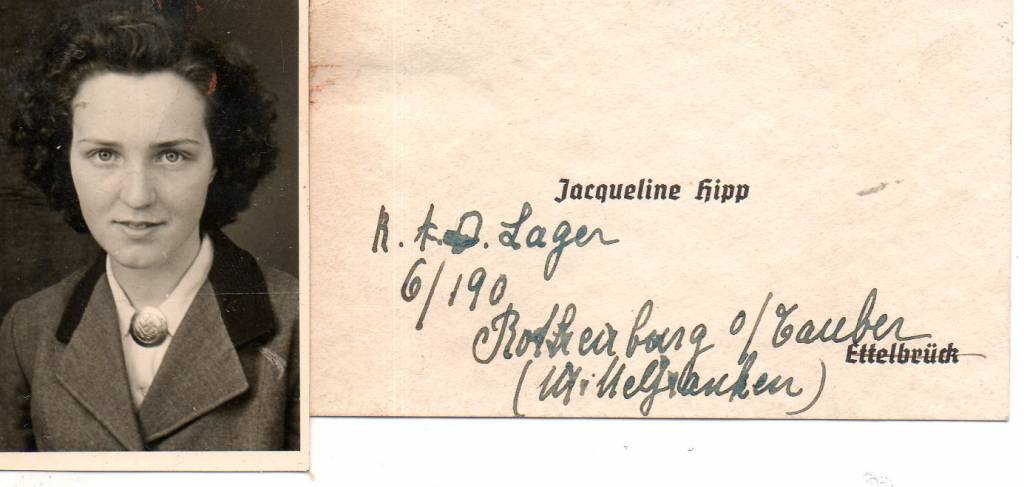 Jacqueline Hipp
R. A. D. Lager
6/190
Rothenburg o/Tauber
Ettelbrück
(Mittelfranken)